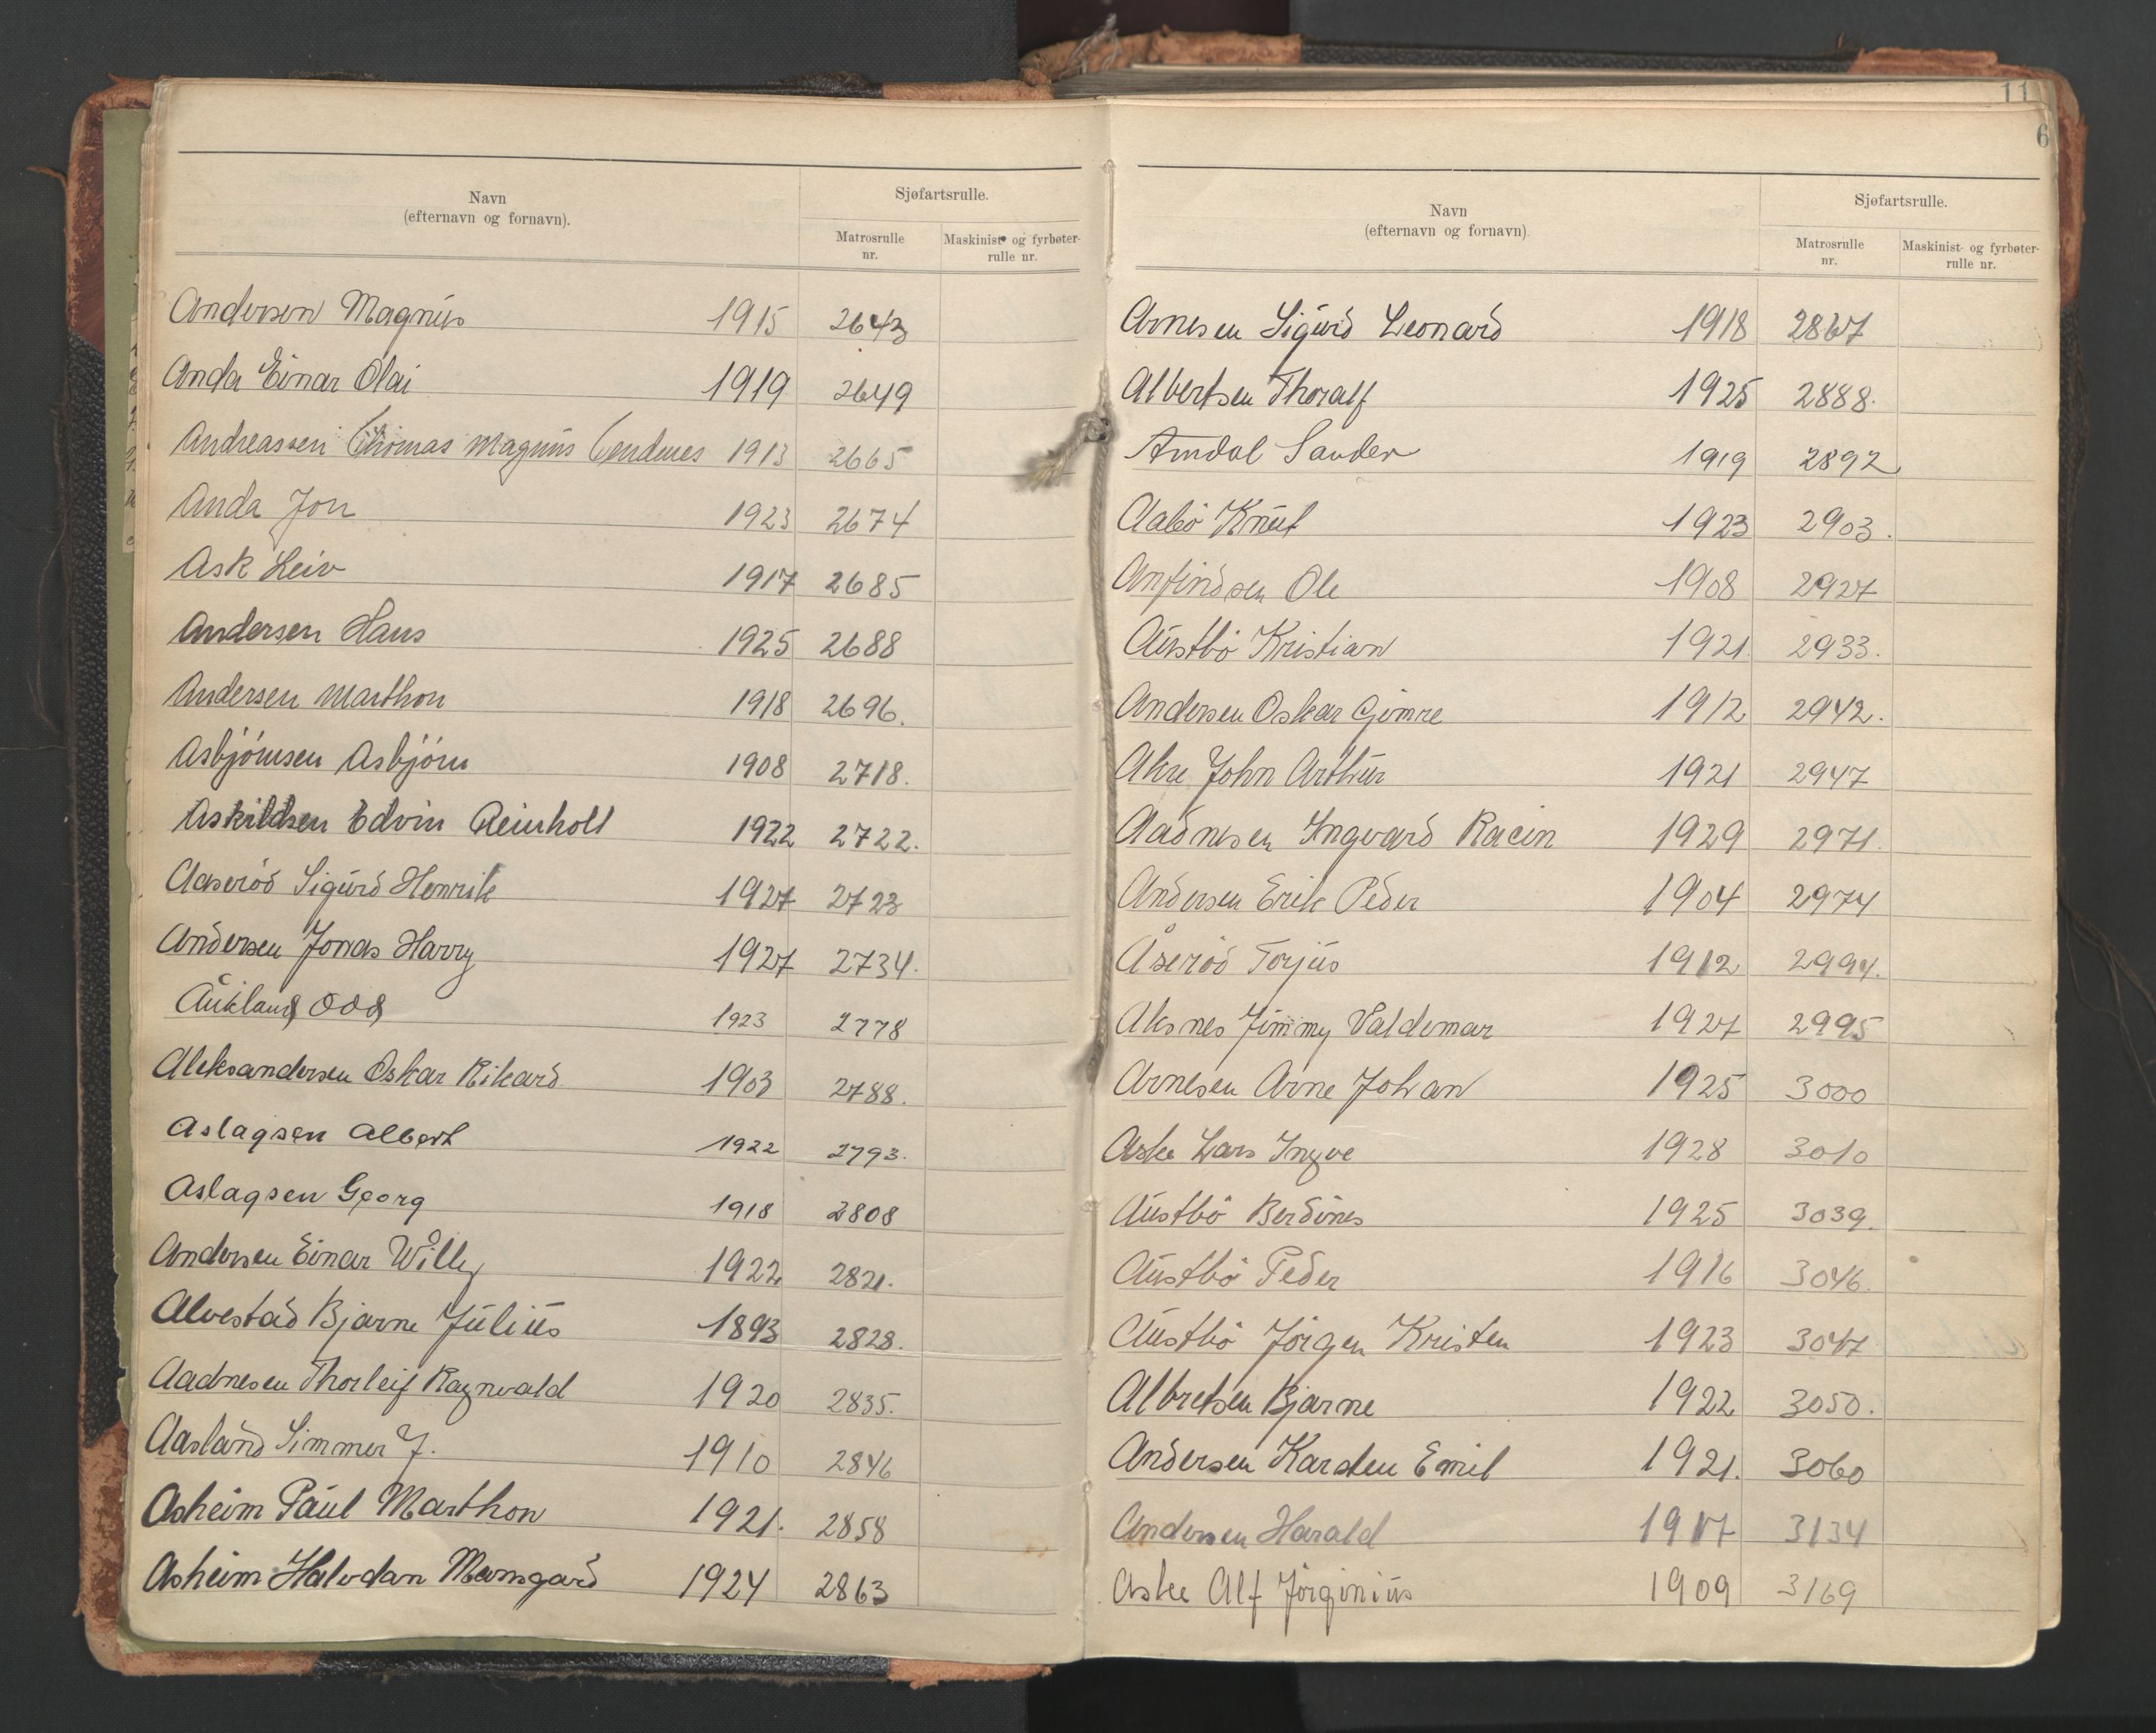 Navn
(efternavn og fornavn).
Sjøfartsrulle.
Matrosrulle
nr.
Maskinist- og fyrbøter-
rulle nr.
Andersen Magnus 1915 2643
Anda Einar Olai 1919 2649
Andreassen Thomas Magnus 1913 2665
Anda Jon 1923 2674
Ask Leiv 1917 2685
Andersen Hans 1925 2688
Andersen Marthon 1918 2696.
Asbjörnsen Asbjörn 1908 2718.
Askildsen Edvin Reinholt 1922 2722.
Aaseröd Sigurd Henrik 1927 2723
Andersen Jonas Harry 1927 2734.
Aukland Odd 1923 2778
Aleksandersen Oskar Rikard 1903 2788.
Aslagsen Albert 1922 2793.
Aslagsen Georg 1918 2808
Andersen Einar Willy 1922 2821.
Alvestad Bjarne Julius 1893 2828.
Aadnesen Thorleif Ragnvald 1920 2835.
Aasland Simmer J. 1910 2846
Asheim Paul Marthon 1921. 2858
Asheim Halvdan Mansgard 1924 2863
11
6
Navn
(efternavn og fornavn)
Sjøfartsrulle.
Matrosrulle
nr.
Maskinist- og fyrbøter-
rulle nr.
Arnesen Sigurd Leonard 1918 2867
Albertsen Thoralf 1925 2888.
Amdal Sander 1919 2892
Aabö Knut 1923 2903.
Anfindsen Ole 1908 2927
Austbö Kristian 1921. 2933.
Andersen Oskar Gimre 1912 2942.
Akre John Arthur 1921 2947
Aadnesen Ingvard Racin 1929 2971.
Andersen Erik Peder 1904 2974
Åseröd Torjus 1912 2994.
Aksnes Jimmy Valdemar 1927 2995
Arnesen Arne Johan 1925 3000
Aske Lars Ingve 1928 3010
Austbö Berdines 1925 3039.
Austbö Peder 1916 3046.
Austbö Jörgen Kristen 1923 3047
Albretsen Bjarne 1922 3050.
Andersen Karsten Emil 1921. 3060
Andersen Harald 1917 3134
Aske Alf Jörginius 1909 3169